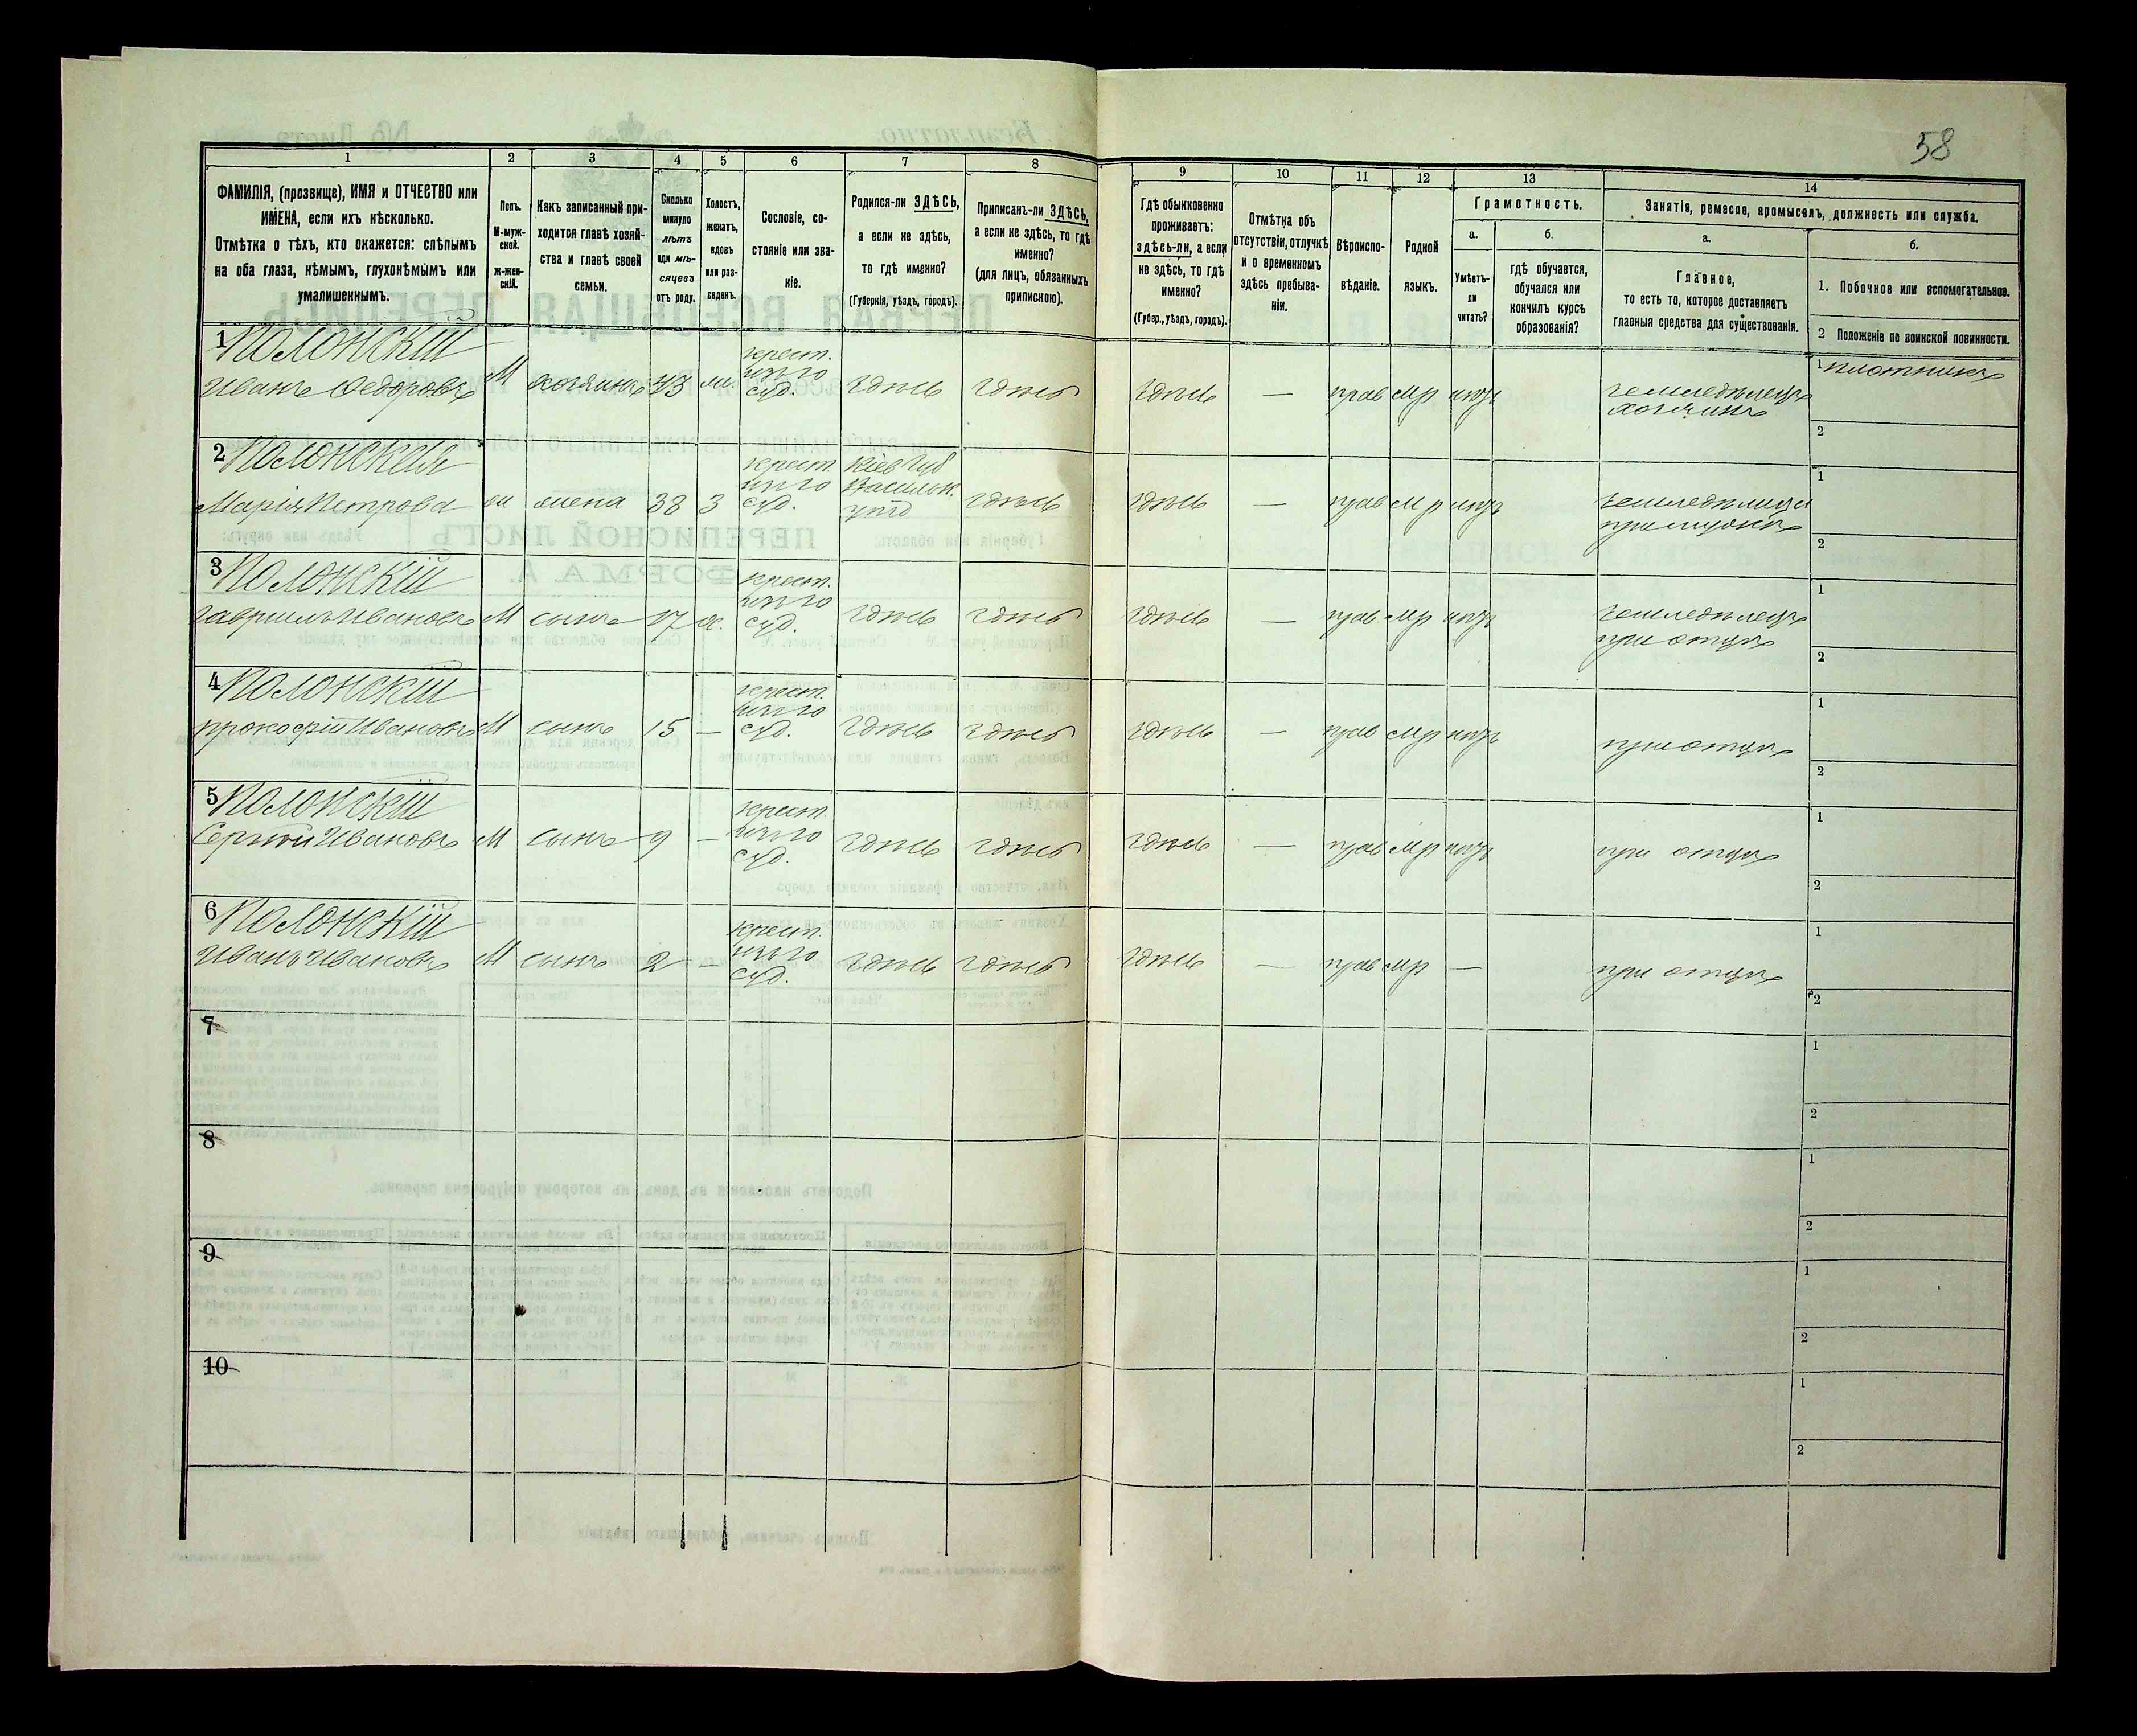 58
1 2 3 4 5 6 7 8 9 10 11 12 13 14
ФАМИЛІЯ, (прозвище), ИМЯ и ОТЧЕСТВО или
ИМЕНА, если ихъ нѣсколько.
Отмѣтка о тѣхъ, кто окажется: слѣпымъ
на оба глаза, нѣмымъ, глухонѣмымъ или
умалишеннымъ.
Полъ.
М-муж-
ской.
ж-жен-
скій.
Какъ записанный при-
ходится главѣ хозяй-
ства и главѣ своей
семьи.
Сколько
минуло
лѣтъ
или мѣ-
сяцевъ
отъ роду.
Холостъ,
женатъ,
вдовъ
или раз-
веденъ.
Сословіе, со-
стояніе или зва-
ніе.
Родился-ли ЗДѢСЬ,
а если не здѣсь,
то гдѣ именно?
(Губернія, уѣздъ, городъ).
Приписанъ-ли ЗДѢСЬ,
а если не здѣсь, то гдѣ
именно?
(для лицъ, обязанныхъ
припискою).
Гдѣ обыкновенно
проживаетъ:
здѣсь-ли, а если
не здѣсь, то гдѣ
именно?
(Губер., уѣздъ, городъ).
Отмѣтка объ
отсутствіи, отлучкѣ
и о временномъ
здѣсь пребыва-
ніи.
Вѣроиспо-
вѣданіе.
Родной
языкъ.
Грамотность.
а.
Умѣетъ-
ли
читать?
б.
гдѣ обучается,
обучался или
кончилъ курсъ
образованія?
Занятія, ремесло, промыселъ, должность или служба.
а.
Главное,
то есть то, которое доставляетъ
главныя средства для существованія.
б.
1. Побочное или вспомогательное.
2 Положеніе по воинской повинности.
1 Полонскій
Иванъ Федоровъ М хозяинъ 43 ж. крест. изъ го суд. здѣсь здѣсь здѣсь — прав мр нѣтъ земледѣлецъ хозяинъ
1 плотникъ
2
2 Полонская
Марія Петрова ж жена 38 з крест. изъ го суд. Кіев губ Васильк. уѣзд здѣсь здѣсь — прав мр нѣтъ земледѣлица при мужѣ
1
2
3 Полонскій
Гавриилъ Ивановъ М сынъ 17 х. крест. изъ го суд. здѣсь здѣсь здѣсь — прав мр нѣтъ земледѣлецъ при отцѣ
1
2
4 Полонскій
Прокофій Ивановъ М сынъ 15 — крест. изъ го суд. здѣсь здѣсь здѣсь — прав мр нѣтъ при отцѣ
1
2
5 Полонскій
Сергѣй Ивановъ М сынъ 9 — крест. изъ го суд. здѣсь здѣсь здѣсь — прав мр нѣтъ при отцѣ
1
2
6 Полонскій
Иванъ Ивановъ М сынъ 2 — крест. изъ го суд. здѣсь здѣсь здѣсь — прав мр — при отцѣ
1
2
7
1
2
8
1
2
9
1
2
10
1
2